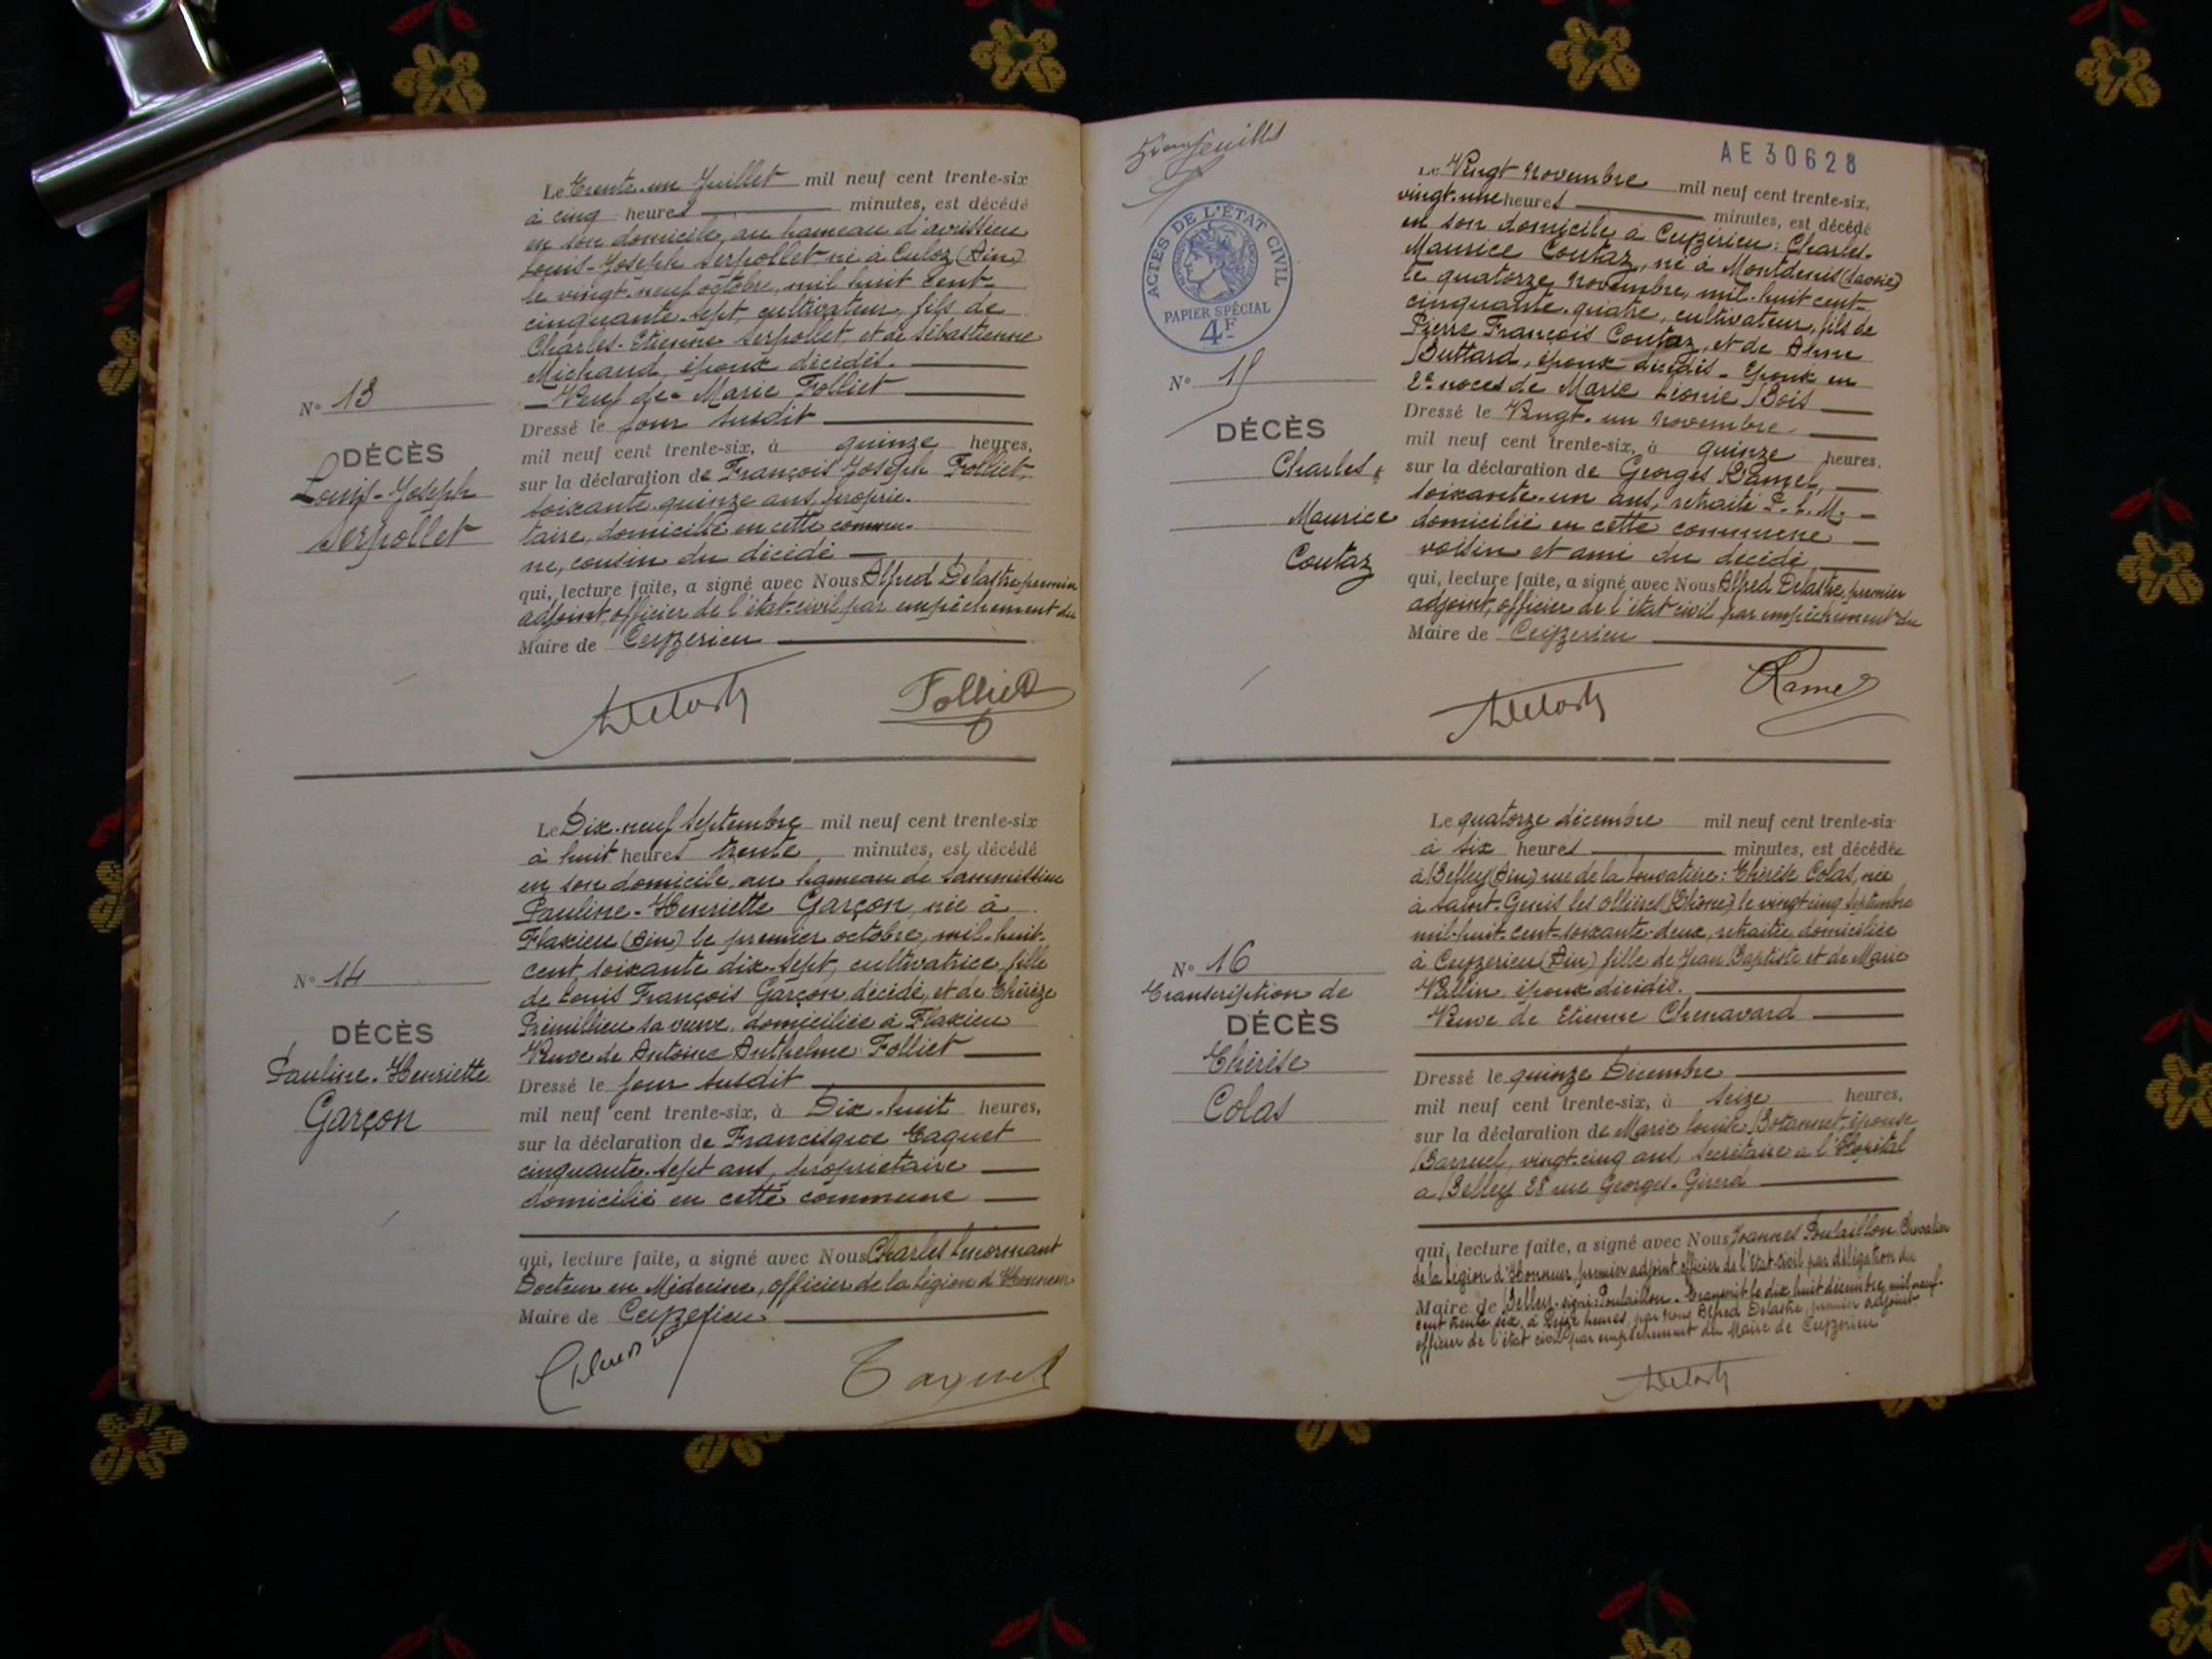 Le Trente-un Juillet mil neuf cent trente-six
à cinq heures minutes, est décédé
en son domicile, au hameau d'avrissieu
Louis-Joseph Serpollet, né à Culoz (Ain)
le vingt-neuf octobre, mil huit cent-
cinquante-sept, cultivateur, fils de
Charles-Etienne Serpollet, et de Sébastienne
Michaud, époux décédés.
Veuf de Marie Folliet
N° 13
DÉCÈS
Louis-Joseph
Serpollet
Dressé le jour susdit
mil neuf cent trente-six, à quinze heures,
sur la déclaration de François Joseph Folliet,
soixante-quinze ans, proprié-
taire, domicilié en cette commu-
ne, cousin du décédé
qui, lecture faite, a signé avec Nous Alfred Delastre, premier
adjoint, officier de l'état-civil par empêchement du
Maire de Ceyzerieu
Folliet
Le Dix-neuf Septembre mil neuf cent trente-six
à huit heures trente minutes, est décédé
en son domicile, au hameau de
Pauline-Henriette Garçon, née à
Flaxieu (Ain) le premier octobre, mil-huit-
cent soixante dix-sept, cultivatrice, fille
de Louis François Garçon, décédé, et de Thérèze
Prémillieu sa veuve, domiciliée à Flaxieu
Veuve de Antoine Anthelme Folliet
N° 14
DÉCÈS
Pauline-Henriette
Garçon
Dressé le jour susdit
mil neuf cent trente-six, à Dix-huit heures,
sur la déclaration de Francisque Taquet
cinquante-sept ans, propriétaire
domicilié en cette commune
qui, lecture faite, a signé avec Nous Charles Lenormant
Docteur en Médecine, officier de la légion d'Honneur
Maire de Ceyzerieu
Taquet
feuille
AE 30628
ACTES DE L'ÉTAT CIVIL
PAPIER SPÉCIAL
4F
Le Vingt Novembre mil neuf cent trente-six,
vingt-une heures minutes, est décédé
en son domicile à Ceyzérieu: Charles-
Maurice Coutaz, né à Montdenis (Savoie)
le quatorze Novembre, mil-huit cent-
cinquante-quatre, cultivateur, fils de
Pierre François Coutaz, et de Anne
Buttard, époux décédés - Epoux en
2e noces de Marie Léonie Bois
N° 15
DÉCÈS
Charles
Maurice
Coutaz
Dressé le Vingt-un Novembre
mil neuf cent trente-six, à quinze heures.
sur la déclaration de Georges Ramel,
soixante-un ans, retraité P.L.M.
domicilié en cette commune
voisin et ami du décédé
qui, lecture faite, a signé avec Nous Alfred Delastre, premier
adjoint, officier de l'état civil par empêchement du
Maire de Ceyzerieu
Ramel
Le quatorze décembre mil neuf cent trente-six
à six heures minutes, est décédée
à Belley (Ain) rue de la : Thérèse Colas, née
à Saint-Genis les Ollières (Rhône) le vingt-cinq septembre
mil-huit-cent-soixante-deux, retraitée, domiciliée
à Ceyzerieu (Ain) fille de Jean Baptiste et de Marie
Vallin, époux décédés.
Veuve de Etienne Chenavard
N° 16
Transcription de
DÉCÈS
Thérèse
Colas
Dressé le quinze Décembre
mil neuf cent trente-six, à seize heures,
sur la déclaration de Marie Louise Botannet, épouse
Barruel, vingt-cinq ans, secrétaire à l'Hopital
à Belley 28 rue Georges-Girerd
qui, lecture faite, a signé avec Nous Joannes Poulaillon Chevalier
de la Légion d'Honneur premier adjoint officier de l'Etat-civil par délégation du
Maire de Belley - signé: Poulaillon - Transcrit le dix huit décembre mil neuf-
cent trente six, à heures, par nous Alfred Delastre, premier adjoint
officier de l'état civil par empêchement du Maire de Ceyzerieu